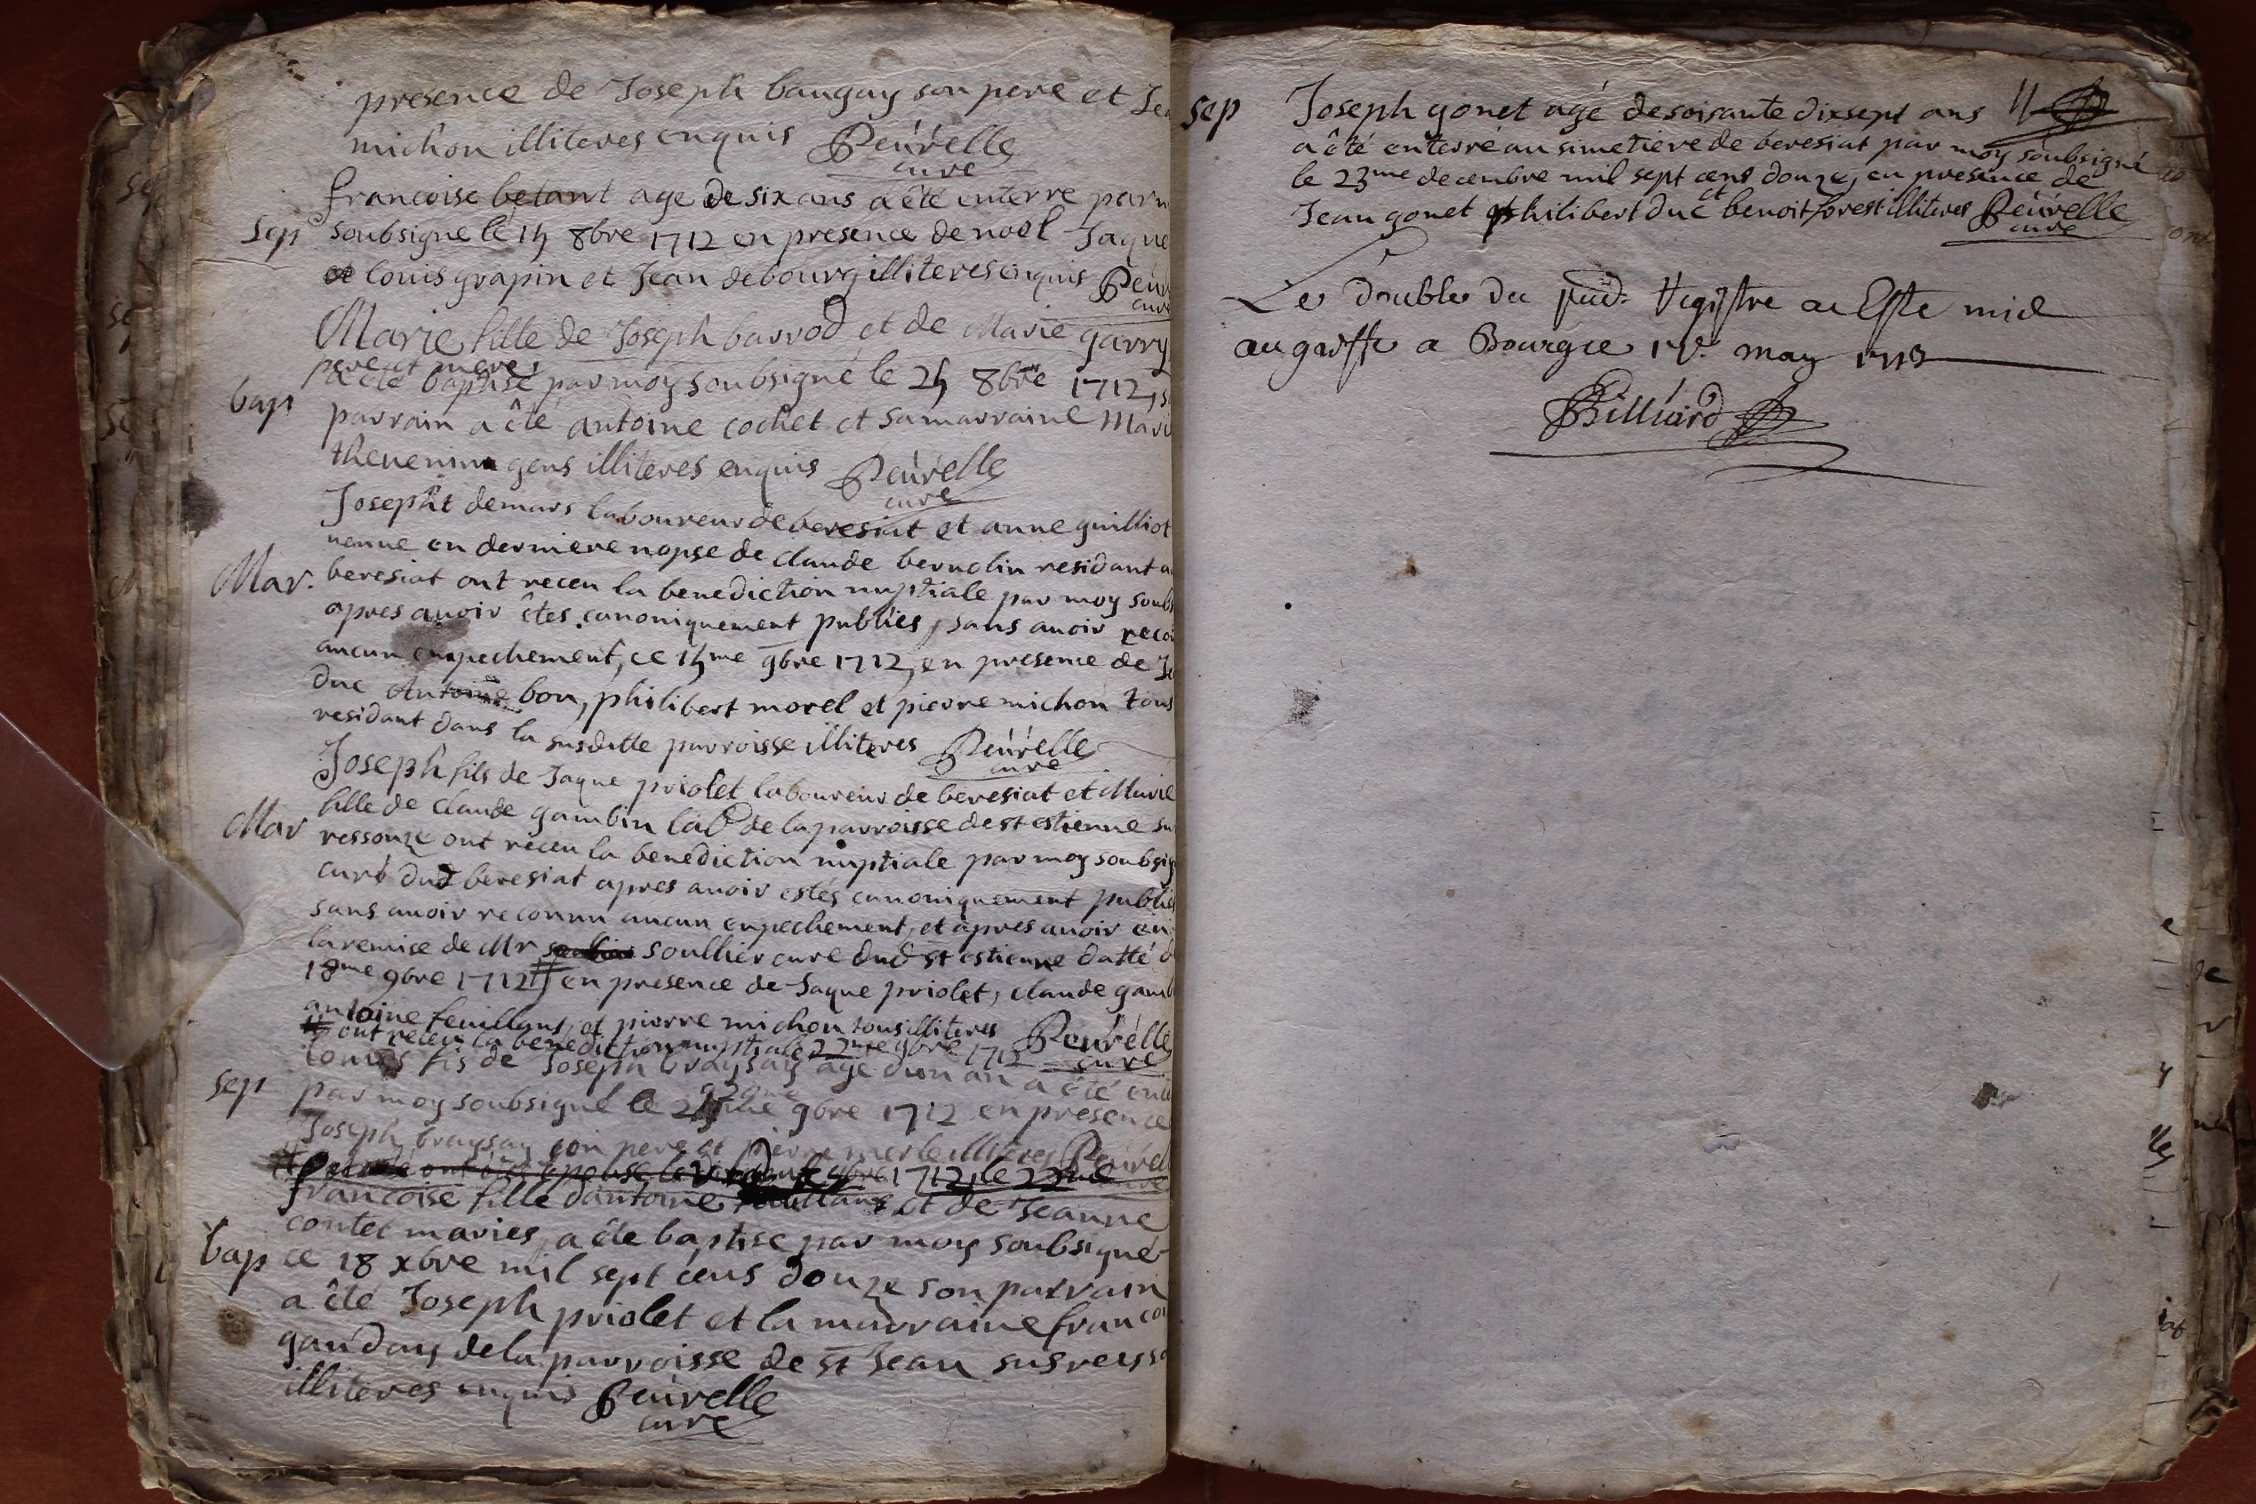 presence de Joseph baugay son pere et Jea
michon illiteres enquis Peurelle
cure
francoise betant age de six ans a êté enterre par m
Sep soubsigne le 14 8bre 1712 en presence de noel Jaque
et louis grapin et Jean debourg illiteres enquis Peur
cure
Marie fille de Joseph barrod et de Marie garry
pere et mere
a êté baptisé par moy soubsigné le 24 8bre 1712, s
bap
parrain a êté antoine cochet et sa marraine Mari
thevenin gens illiteres enquis Peurelle
cure
Josepht demars laboureur de beresiat et anne guilliot
venue en derniere nopse de claude bernolin residant a
Mar. beresiat ont receu la benediction nuptiale par moy soubs
apres avoir êtes canoniquement publiés, sans avoir reco
aucun enpechement, ce 14me 9bre 1712, en presence de Je
duc Antoine bon, philibert morel et pierre michon tous
residant dans la susditte parroisse illiteres Peurelle
cure
Joseph fils de Jaque priolet laboureur de beresiat et Marie
fille de claude gambin lab de la parroisse de st estienne su
Mar ressouze ont receu la benediction nuptiale par moy soubsig
curé dud beresiat apres avoir estés canoniquement publié
sans avoir reconnu aucun enpechement, et apres avoir eu
la remise de Mr soullier cure dud st estienne datté d
18me 9bre 1712 # en presence de Jaque priolet, claude gamb
antoine feuillans, et pierre michon tous illiteres Peurelle
# ont receu la benediction nuptiale 22me 9bre 1712 cure
louis fis de Joseph braysay age d'un an a êté ente
sep par moy soubsigné le 29me 9bre 1712 en presence
Joseph braysay son pere et pierre merle illiteres Peurel
1712, le 22me
francoise fille dantoine feuillans et de Jeanne
contet maries, a êté baptise par moy soubsigné
bap ce 18 xbre mil sept cens douze son parrain
a êté Joseph priolet et la marraine francoi
gauday de la parroisse de st Jean sus reysso
illiteres enquis Peurelle
cure
sep Joseph gonet agé de soisante dix sept ans
a êté enterré au simetiere de beresiat par moy soubsigné
le 23me decembre mil sept cens douze, en presence de
Jean gonet philibert duc et benoit forest illiteres Peurelle
cure
Le double du pnd. Registre a Esté mid
au greffe a Bourg ce may 1713
Billiard